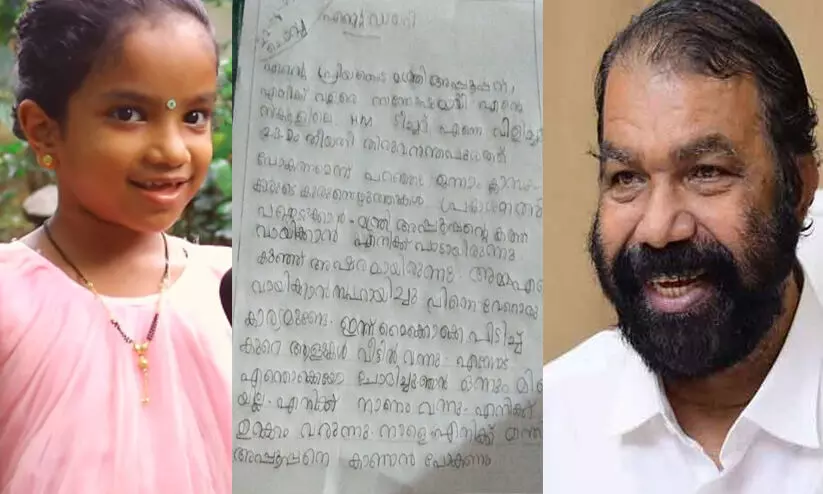 എന്റെ പ്രിയപ്പെട്ട മന്ത്രി അപ്പൂപ്പന്,
എനിക്ക് വളരെ സന്തോഷമായി എന്റെ
സ്കൂളിലെ HM ടീച്ചർ എന്നെ വിളിച്ചു
തിരുവനന്തപുരത്ത്
പോകണമെന്ന് പറഞ്ഞു ഒന്നാം ക്ലാസു
കാരുടെ കുഞ്ഞെഴുത്തുകൾ പ്രകാശനത്തിൽ
പങ്കെടുക്കാൻ - മന്ത്രി അപ്പൂപ്പന്റെ കത്ത്
വായിക്കാൻ എനിക്ക് പാടായിരുന്നു
കുഞ്ഞ് അക്ഷരമായിരുന്നു. അമ്മ എന്നെ
വായിക്കാൻ സഹായിച്ചു പിന്നെ വേറൊരു
കാര്യമുണ്ടേ. ഇന്ന് മൈക്കൊക്കെ പിടിച്ച്
കുറെ ആളുകൾ വീട്ടിൽ വന്നു - എന്നോട്
എന്തൊക്കെയോ ചോദിച്ചു ഞാൻ ഒന്നും മിണ്ടി
യില്ല - എനിക്ക് നാണം വന്നു - എനിക്ക്
ഉറക്കം വരുന്നു. നാളെ എനിക്ക് മന്ത്രി
അപ്പൂപ്പനെ കാണാൻ പോകണം